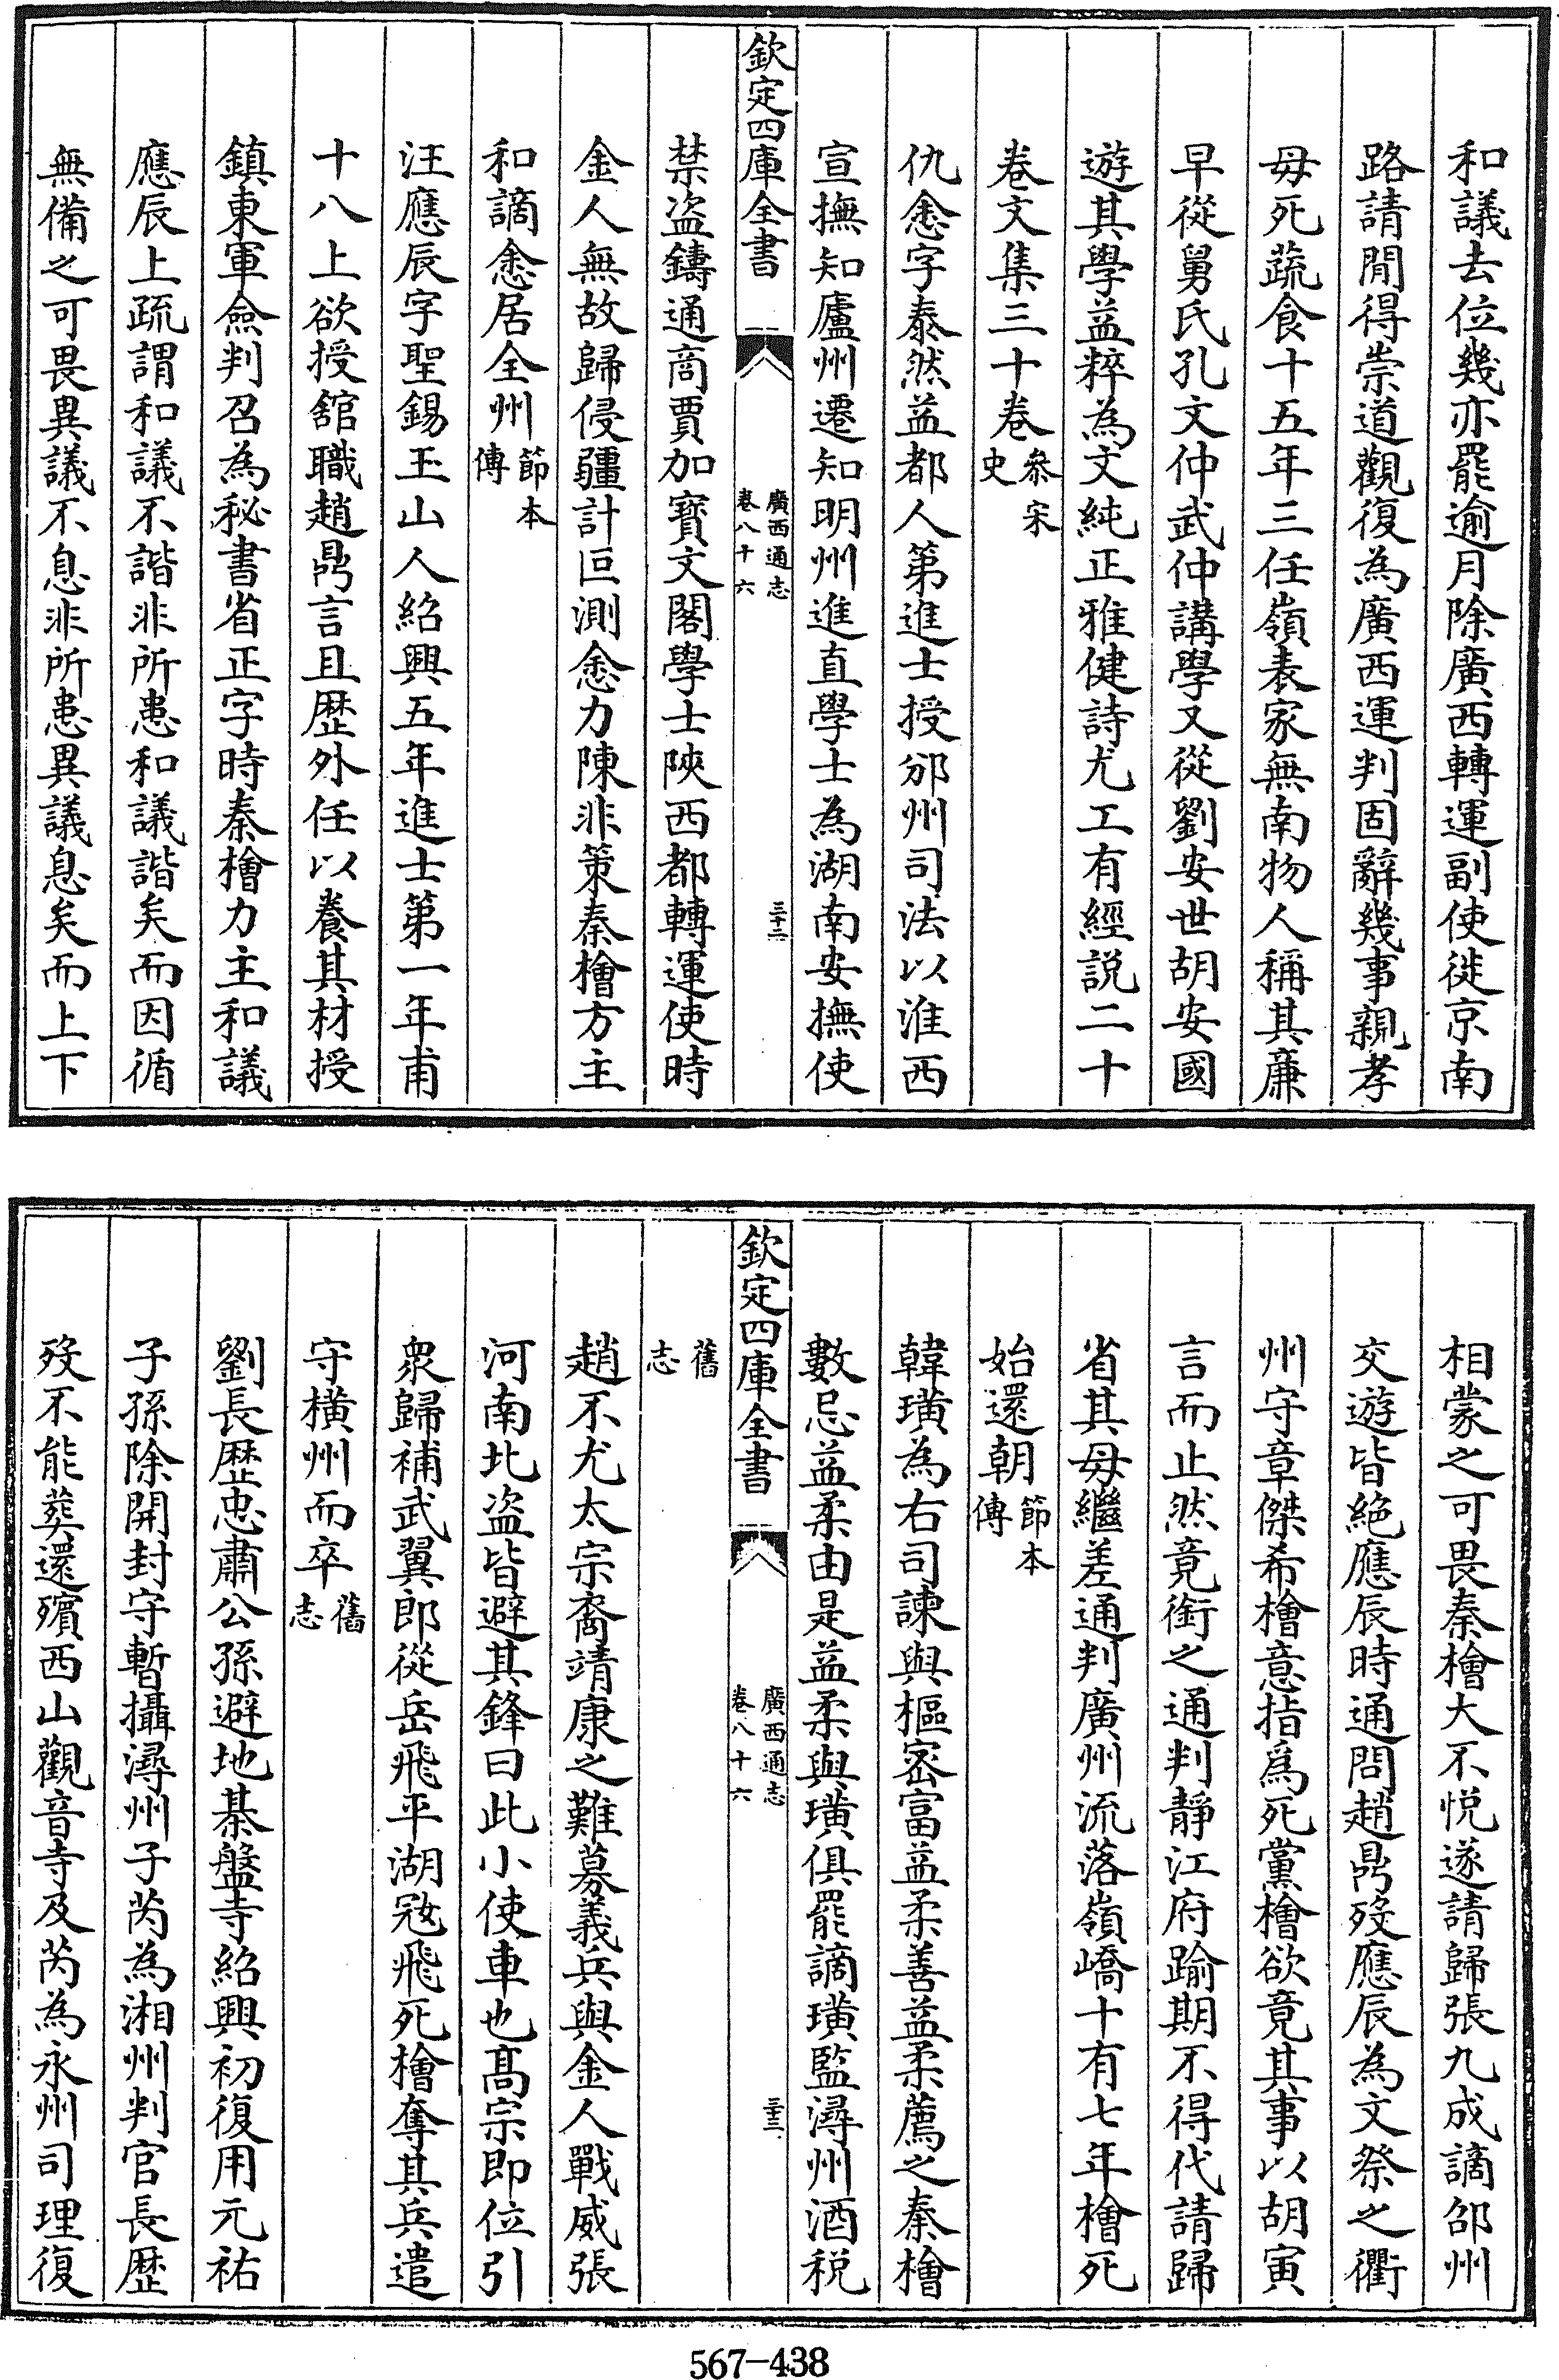 和議去位幾亦罷逾月除廣西轉運副使徙京南
路請閒得崇道觀復為廣西運判固辭幾事親孝
母死蔬食十五年三任嶺表家無南物人稱其廉
早從舅氏孔文仲武仲講學又從劉安世胡安國
遊其學益粹為文純正雅健詩尤工有經説二十
卷文集三十卷參宋史
仇悆字泰然益都人第進士授邠州司法以淮西
宣撫知廬州遷知明州進直學士為湖南安撫使
欽定四庫全書
廣西通志
卷八十六
三十二
禁盗鑄通商賈加寳文閣學士陜西都轉運使時
金人無故歸侵疆計叵測悆力陳非策秦檜方主
和謫悆居全州節本傳
汪應辰字聖錫玉山人紹興五年進士第一年甫
十八上欲授舘職趙鼎言且歴外任以養其材授
鎮東軍僉判召為秘書省正字時秦檜力主和議
應辰上疏謂和議不諧非所患和議諧矣而因循
無備之可畏異議不息非所患異議息矣而上下
相蒙之可畏秦檜大不悦遂請歸張九成謫邵州
交遊皆絶應辰時通問趙鼎殁應辰為文祭之衢
州守章傑希檜意指爲死黨檜欲竟其事以胡寅
言而止然竟銜之通判靜江府踰期不得代請歸
省其母繼差通判廣州流落嶺嶠十有七年檜死
始還朝節本傳
韓璜為右司諫與樞宻富益柔善益柔薦之秦檜
數忌益柔由是益柔與璜俱罷謫璜監潯州酒税
欽定四庫全書
廣西通志
卷八十六
三十三
舊志
趙不尤太宗裔靖康之難募義兵與金人戰威張
河南北盗皆避其鋒曰此小使車也髙宗即位引
衆歸補武翼郎從岳飛平湖冦飛死檜奪其兵遣
守横州而卒舊志
劉長歴忠肅公孫避地棊盤寺紹興初復用元祐
子孫除開封守暫攝潯州子芮為湘州判官長歴
殁不能葬還殯西山觀音寺及芮為永州司理復
567-438